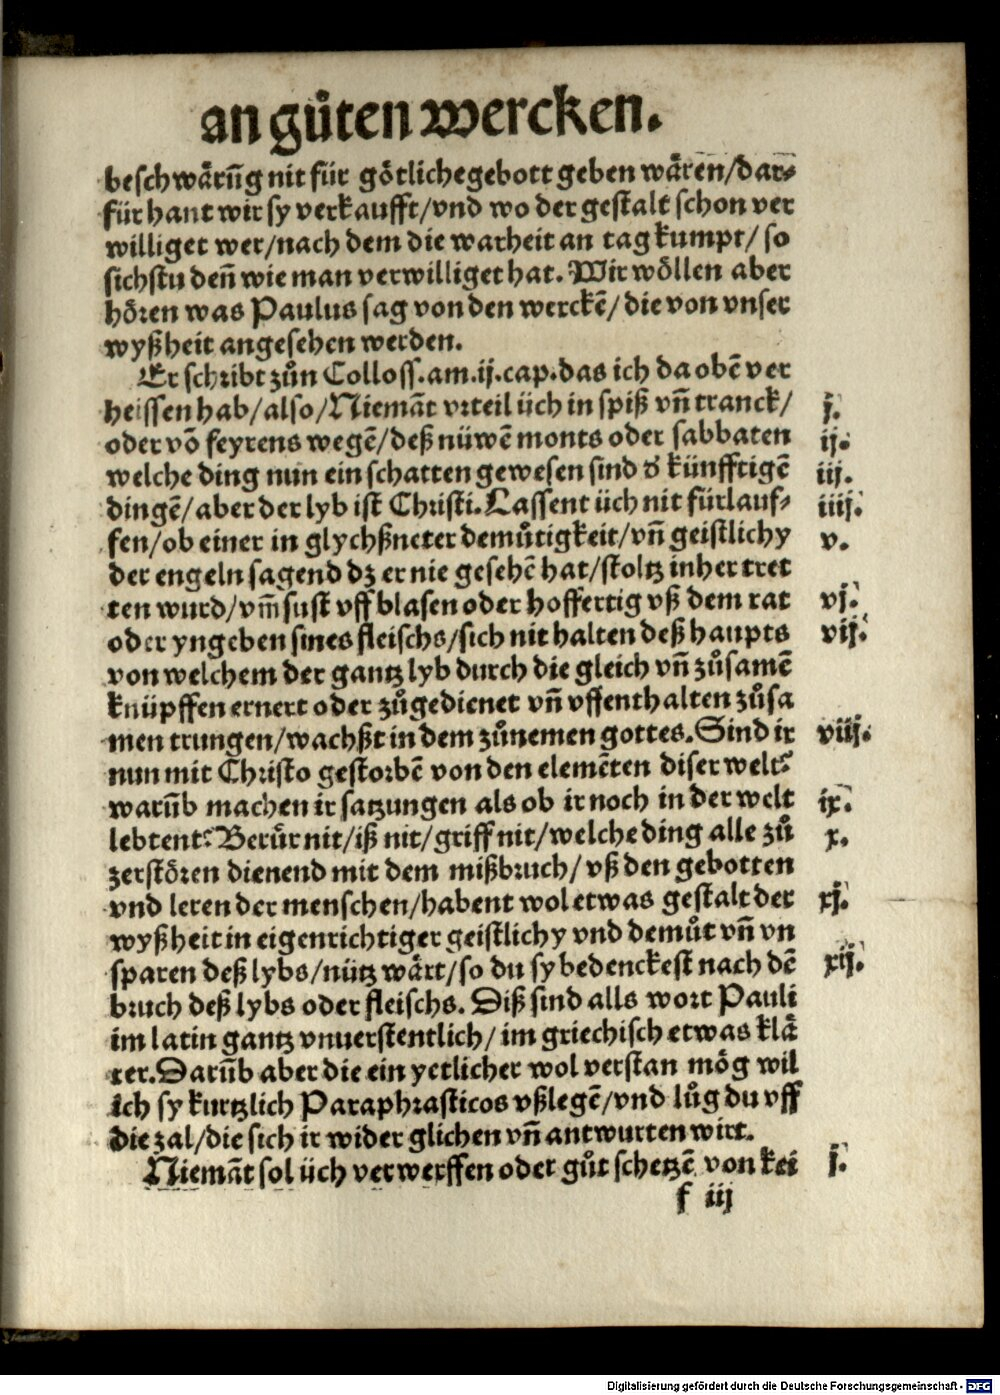 an gůten wercken.
beschwårūg nit für götliche gebott geben wåren/dar-
für hant wir sy verkaufft/vnd wo der gestalt schon ver
williget wer/nach dem die warheit an tag kumpt/ so
sichstu deñ wie man verwilliget hat. Wir wöllen aber
hören was Paulus sag von den werckē/ die von vnser
wyßheit angesehen werden.
Er schribt zůn Colloss.am.ij.cap.das ich da obē ver
heissen hab/also/Niemāt vrteil üch in spiß vñ tranck/ j.
oder vō feyrens wegē/deß nüwē monts oder sabbaten ij.
welche ding nun ein schatten gewesen sind d' künfftigē iij.
dingē/aber der lyb ist Christi. Lassent üch nit fürlauf- iiij.
fen/ob einer in glychßneter demůtigkeit/vñ geistlichy v.
der engeln sagend dz er nie gesehē hat/stoltz inher tret
ten wurd/vm̄ sust vff blasen oder hoffertig vß dem rat vj.
oder yngeben sines fleischs/sich nit halten deß haupts vij.
von welchem der gantz lyb durch die gleich vñ zůsamē
knüpffen ernert oder zůgedienet vñ vffenthalten zůsa
men trungen/wachßt in dem zůnemen gottes. Sind ir viij.
nun mit Christo gestorbē von den elemēten diser welt?
warūb machen ir satzungen als ob ir noch in der welt ix.
lebtent? Berůr nit/iß nit/griff nit/welche ding alle zů x.
zerstören dienend mit dem mißbruch/ vß den gebotten
vnd leren der menschen/habent wol etwas gestalt der xj.
wyßheit in eigenrichtiger geistlichy vnd demůt vñ vn
sparen deß lybs/nütz wårt/so du sy bedenckest nach dē xij.
bruch deß lybs oder fleischs. Diß sind alls wort Pauli
im latin gantz vnuerstentlich/ im griechisch etwas klå
rer. Darūb aber die ein yetlicher wol verstan mög wil
ich sy kurtzlich Paraphrasticos vßlegē/vnd lůg du vff
die zal/die sich ir wider glichen vñ antwurten wirt.
Niemāt sol üch verwerffen oder gůt schetzē von kei j.
f iij
Digitalisierung gefördert durch die Deutsche Forschungsgemeinschaft - DFG